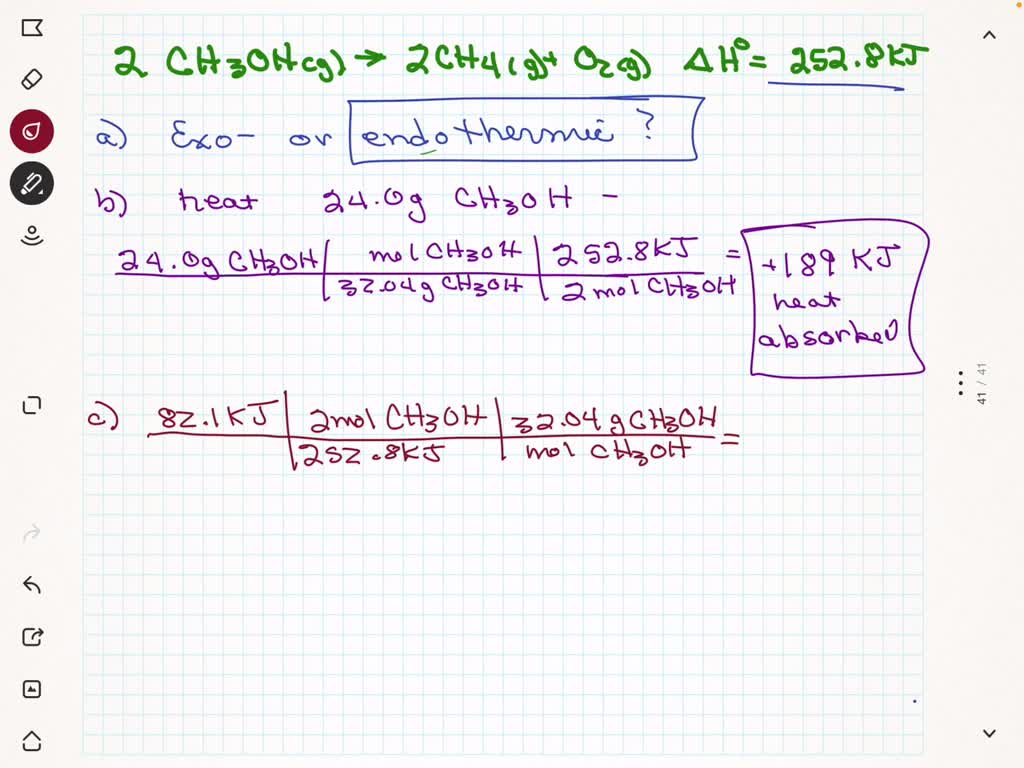 2 CH3OH(g) → 2CH4(g) + O2(g) ΔH° = 252.8KJ
a) Exo- or endothermic?
b) heat 24.0g CH3OH -
24.0g CH3OH | mol CH3OH | 252.8KJ =
32.04g CH3OH | 2mol CH3OH
+189 KJ
heat
absorbed
c) 82.1KJ | 2mol CH3OH | 32.04gCH3OH =
252.8KJ | mol CH3OH
41 / 41